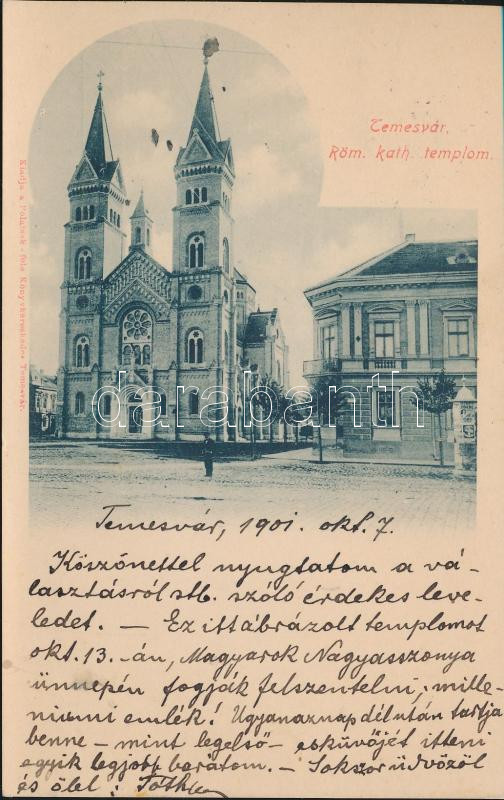 Temesvár.
Röm. kath. templom.
Kiadja a Polatsek-féle Könyvkereskedés Temesvár.
darabanth
Temesvár, 1901. okt. 7.
Köszönettel nyugtatom a vá-
lasztásról stb. szóló érdekes leve-
ledet. — Ez itt ábrázolt templomot
okt. 13.-án, Magyarok Nagyasszonya
ünnepén fogják felszentelni; mille-
niumi emlék! Ugyanaznap délután tartja
benne — mint legelső — esküvőjét itteni
egyik legjobb barátom. — Sokszor üdvözöl
és ölel: Tóth